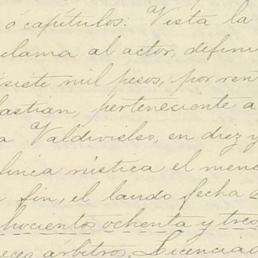 ó capítulos: Vista la
clama al actor, defini
siete mil pesos, por ren
bastian, perteneciente a
a Valdivielso, en diez y
finca rústica el menc
fin, el laudo fecha
chocientos ochenta y tres
árbitros, Licenciad